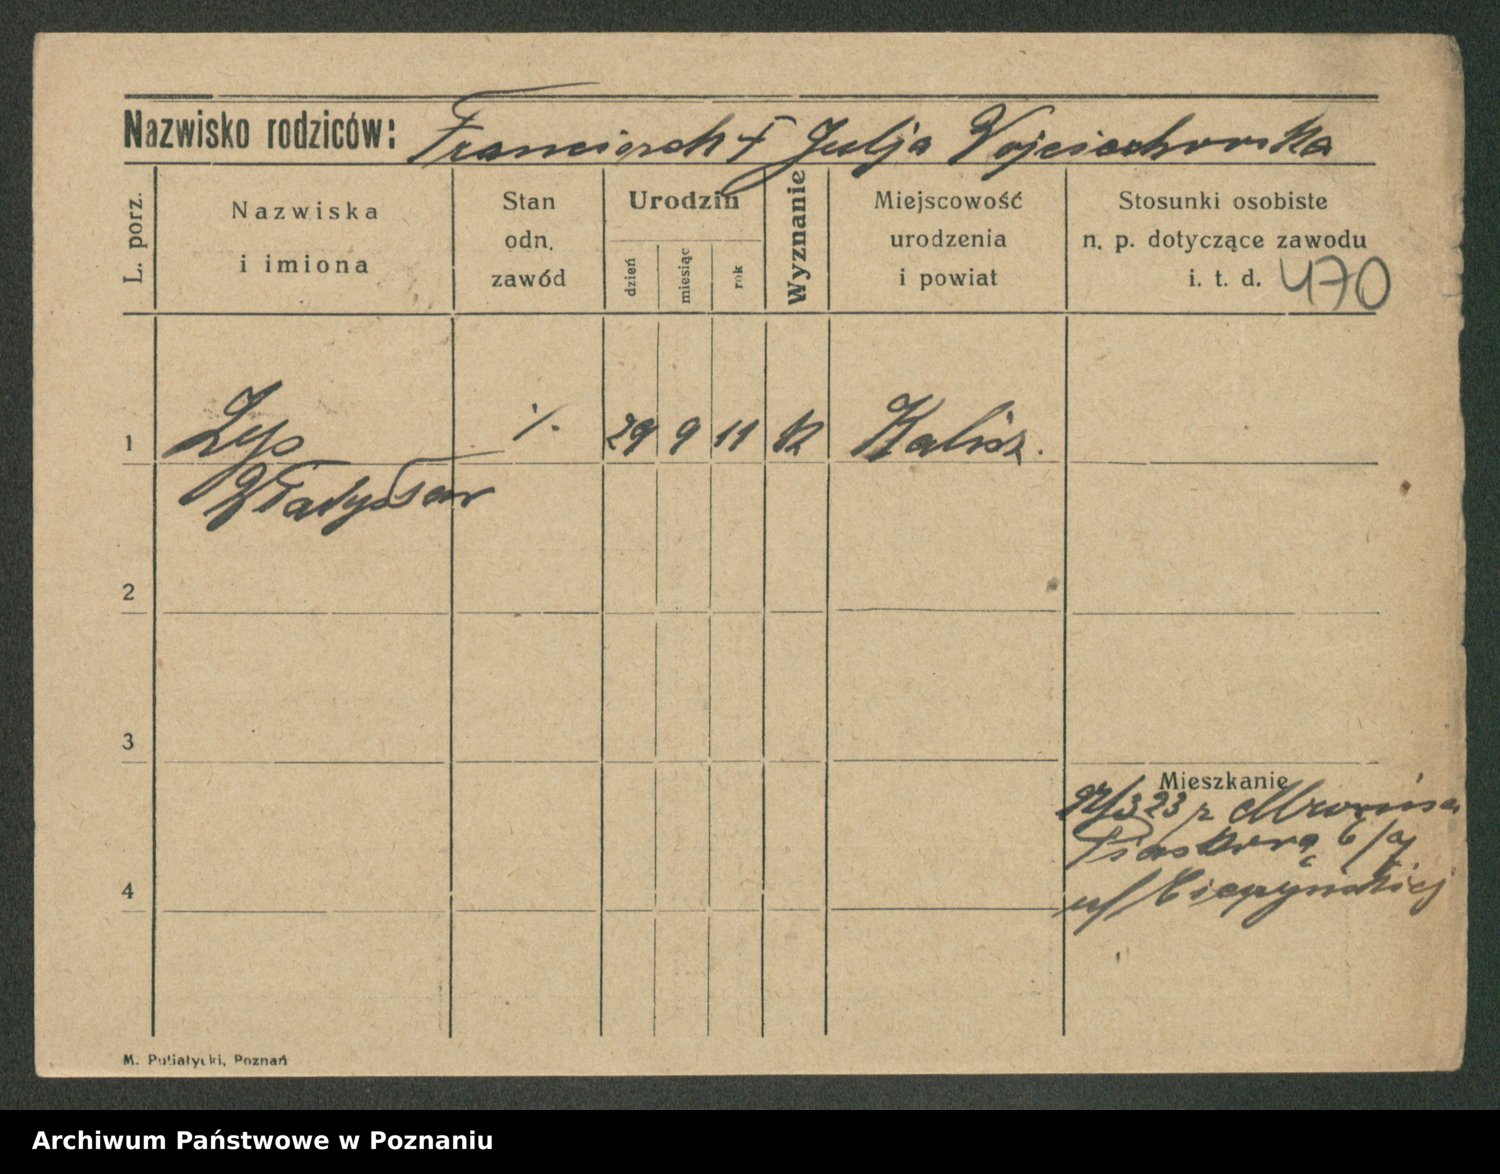 Nazwisko rodziców: Franciszek † Julja Wojciechowska
L. porz.
Nazwiska i imiona
Stan odn. zawód
Urodzin
dzień
miesiąc
rok
Wyznanie
Miejscowość urodzenia i powiat
Stosunki osobiste n. p. dotyczące zawodu i. t. d.
470
1 Zys ·/. 29 9 11 K Kalisz.
Władysław
2
3
Mieszkanie
3 23 z
6/
u/
4
M. Putiatycki, Poznań
Archiwum Państwowe w Poznaniu